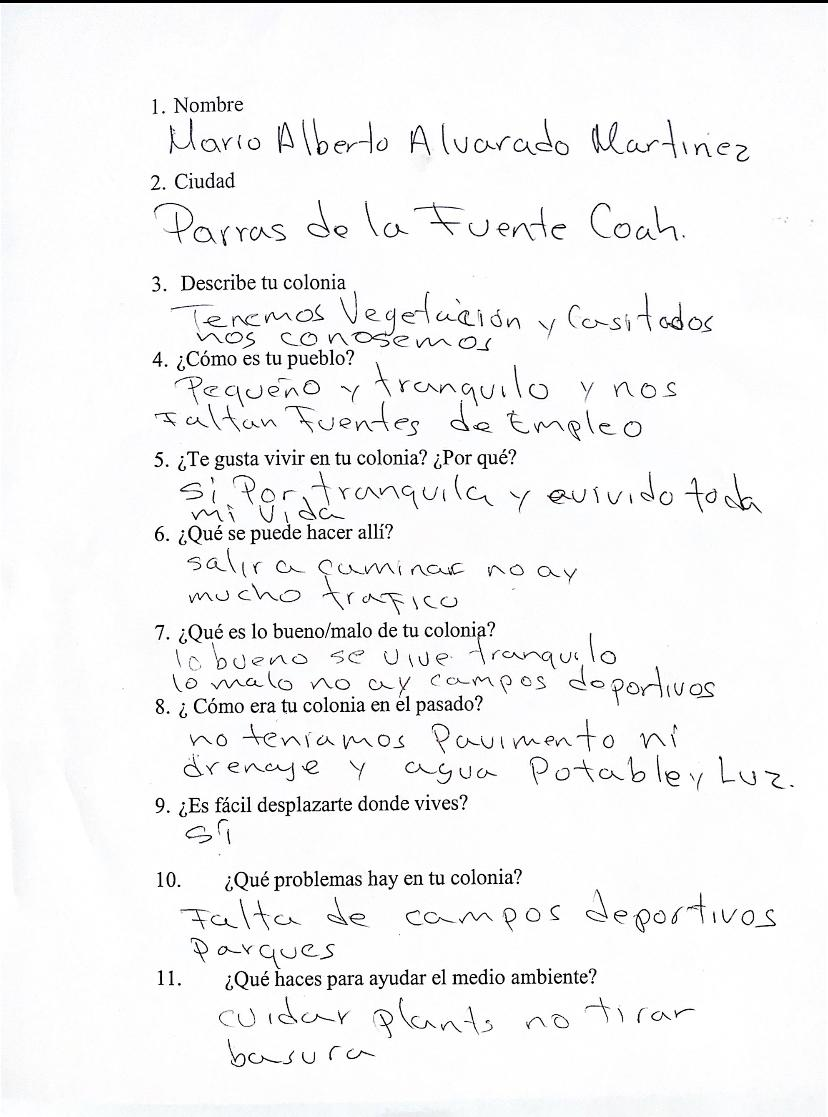 1. Nombre
Mario Alberto Alvarado Martinez
2. Ciudad
Parras de la Fuente Coah.
3. Describe tu colonia
Tenemos Vegetación y Casi todos
nos conosemos
4. ¿Cómo es tu pueblo?
Pequeño y tranquilo y nos
Faltan Fuentes de Empleo
5. ¿Te gusta vivir en tu colonia? ¿Por qué?
si Por tranquila y evivido toda
mi vida
6. ¿Qué se puede hacer allí?
salir a caminar no ay
mucho trafico
7. ¿Qué es lo bueno/malo de tu colonia?
lo bueno se vive tranquilo
lo malo no ay campos deportivos
8. ¿ Cómo era tu colonia en el pasado?
no teniamos Pavimento ni
drenaje y agua Potable y Luz.
9. ¿Es fácil desplazarte donde vives?
Si
10. ¿Qué problemas hay en tu colonia?
Falta de campos deportivos
Parques
11. ¿Qué haces para ayudar el medio ambiente?
cuidar plants no tirar
basura